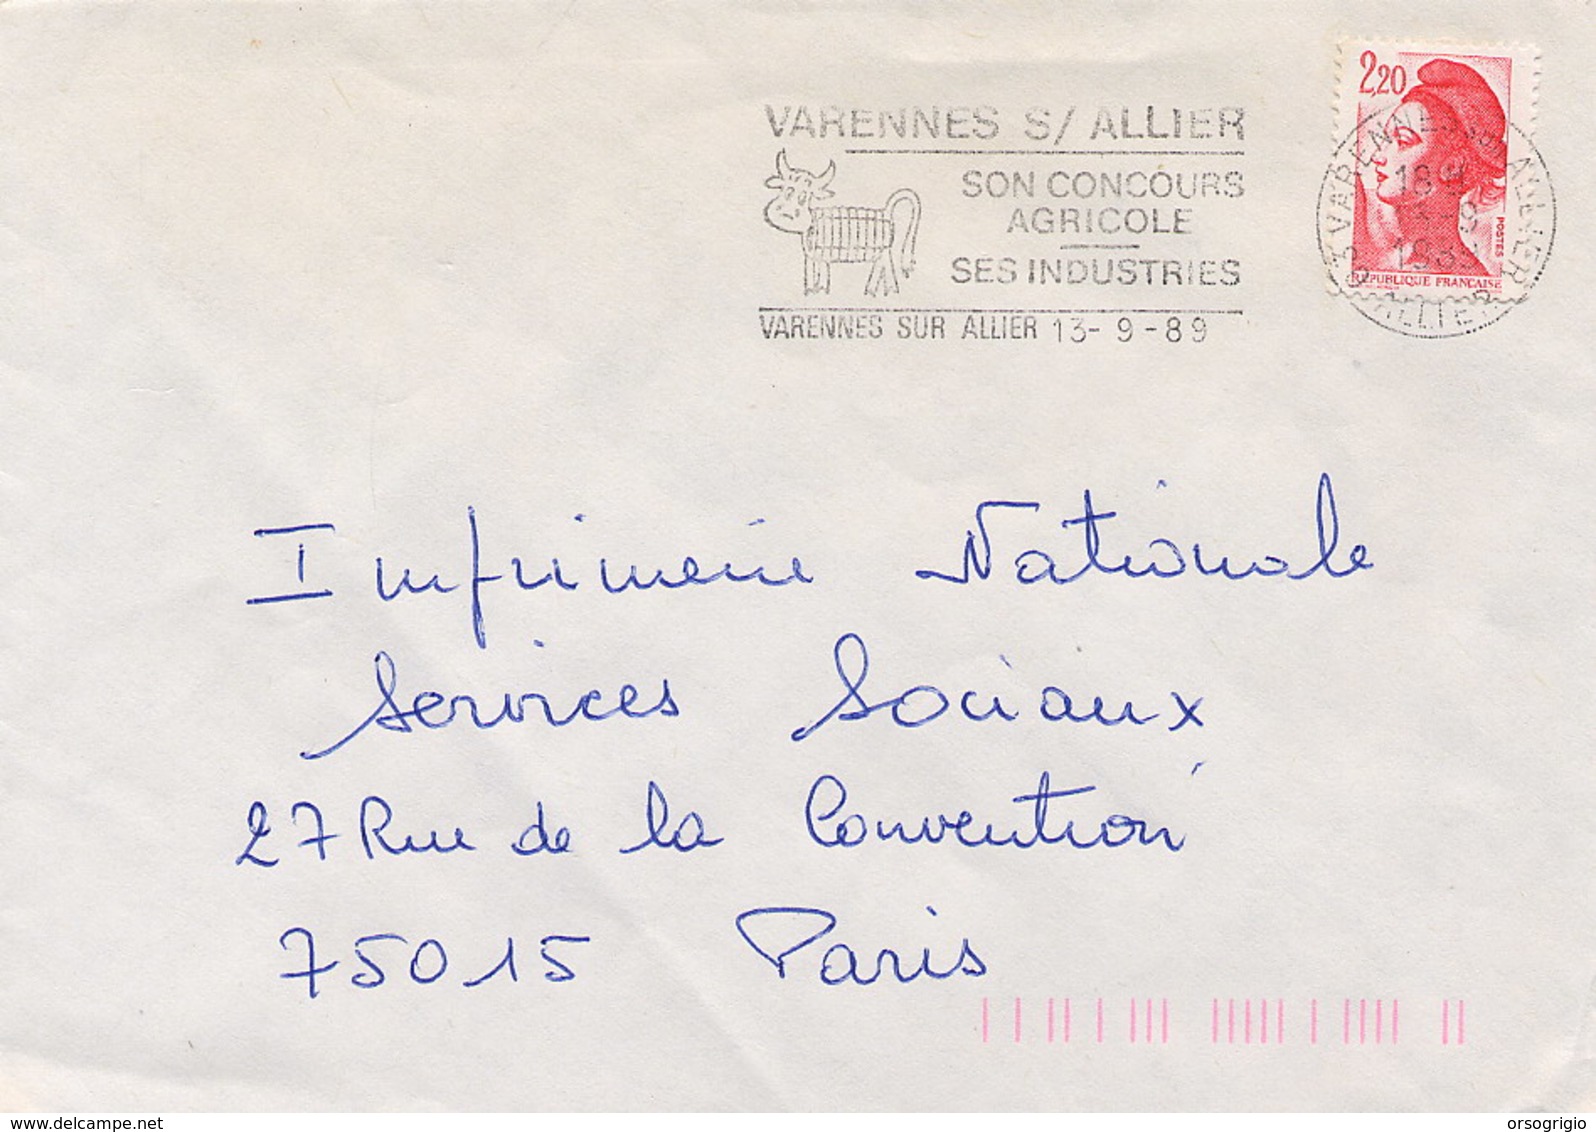 VARENNES S/ ALLIER
SON CONCOURS
AGRICOLE
SES INDUSTRIES
VARENNES SUR ALLIER 13-9-89
2,20
POSTES
REPUBLIQUE FRANCAISE
VARENNES S/ ALLIER
18 H
13-9
1989
03 ALLIER
Imprimerie Nationale
Services Sociaux
27 Rue de la Convention
75015 Paris
delcampe.net
orsogrigio